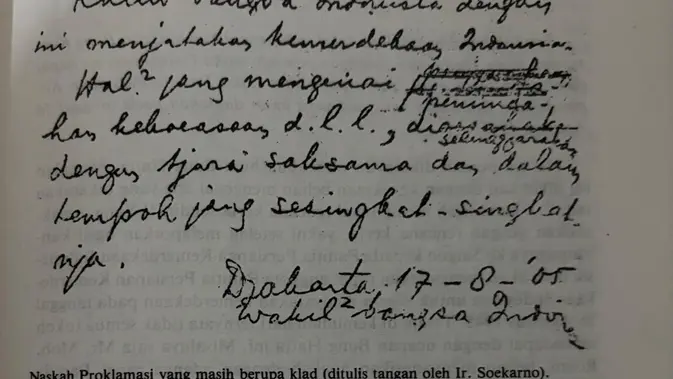 Kami bangsa Indonesia dengan
ini menjatakan kemerdekaan Indonesia.
Hal² jang mengenai peminda-
han kekoeasaan d.l.l., diselenggarakan
dengan tjara saksama dan dalam
tempoh jang sesingkat-singkat-
nja.
Djakarta, 17 - 8 - '05
Wakil² bangsa Indonesia
Naskah Proklamasi yang masih berupa klad (ditulis tangan oleh Ir. Soekarno).